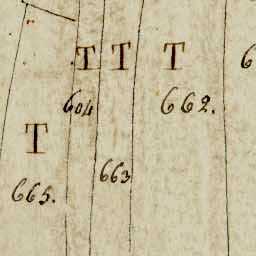 T T T 6
604 662.
T
663
665.